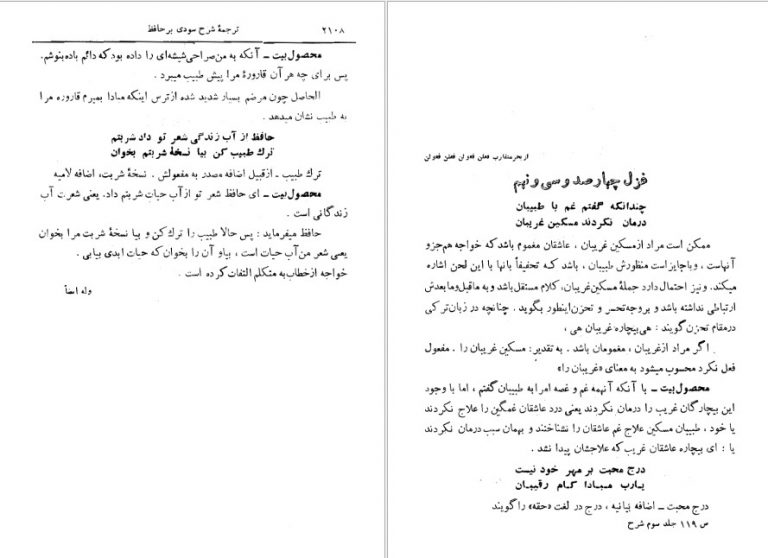 ۲۱۰۸ ترجمهٔ شرح سودی بر حافظ
محصول بیت ـ آنکه به من صراحی شیشه‌ای را داده بود که دائم باده بنوشم.
پس برای چه هر آن قارورهٔ مرا پیش طبیب میبرد .
الحاصل چون مرضم بسیار شدید شده از ترس اینکه مبادا بمیرم قاروره مرا
به طبیب نشان میدهد .
حافظ از آب زندگی شعر تو داد شربتم
ترك طبیب کن بیا نسخهٔ شربتم بخوان
ترك طبیب ـ ازقبیل اضافه مصدر به مفعولش . نسخهٔ شربت، اضافه لامیه
محصول بیت ـ ای حافظ شعر تو از آب حیات شربتم داد. یعنی شعرت آب
زندگانی است .
حافظ میفرماید : پس حالا طبیب را ترك کن و بیا نسخهٔ شربت مرا بخوان
یعنی شعر من آب حیات است ، بیا و آن را بخوان که حیات ابدی بیابی .
خواجه ازخطاب به متکلم التفات کرده است .
وله ایضاً
ازبحرمتقارب فعلن فعولن فعلن فعولن
غزل چهارصد و سی و نهم
چندانکه گفتم غم با طبیبان
درمان نکردند مسکین غریبان
ممکن است مراد ازمسکین غریبان ، عاشقان مغموم باشد که خواجه هم جزو
آنهاست ، و یاجایز است منظورش طبیبان ، باشد کـه تحفیفاً بانها با این لحن اشاره
میکند. و نیز احتمال دارد جملهٔ مسکین غریبان، کلام مستقل باشد و به ماقبل و ما بعدش
ارتباطی نداشته باشد و بر وجه تحسر و تحزن اینطور بگوید . چنانچه در زبان ترکی
درمقام تحزن گویند : هی بیچاره غریبان هی ،
اگر مراد ازغریبان ، مغمومان باشد . به تقدیر: مسکین غریبان را . مفعول
فعل نکرد محسوب میشود به معنای «غریبان را»
محصول بیت ـ با آنکه آنهمه غم و غصه امرا به طبیبان گفتم ، اما با وجود
این بیچارگان غریب را درمان نکردند یعنی درد عاشقان غمگین را علاج نکردند
یا خود ، طبیبان مسکین علاج غم عاشقان را نشناختند و بهمان سبب درمان نکردند
یا : ای بیچاره عاشقان غریب که علاجشان پیدا نشد .
درج محبت بر مهر خود نیست
یارب مبادا کام رقیبان
درج محبت ـ اضافه بیانیه ، درج در لغت «حقه» را گویند
ص ۱۱۹ جلد سوم شرح